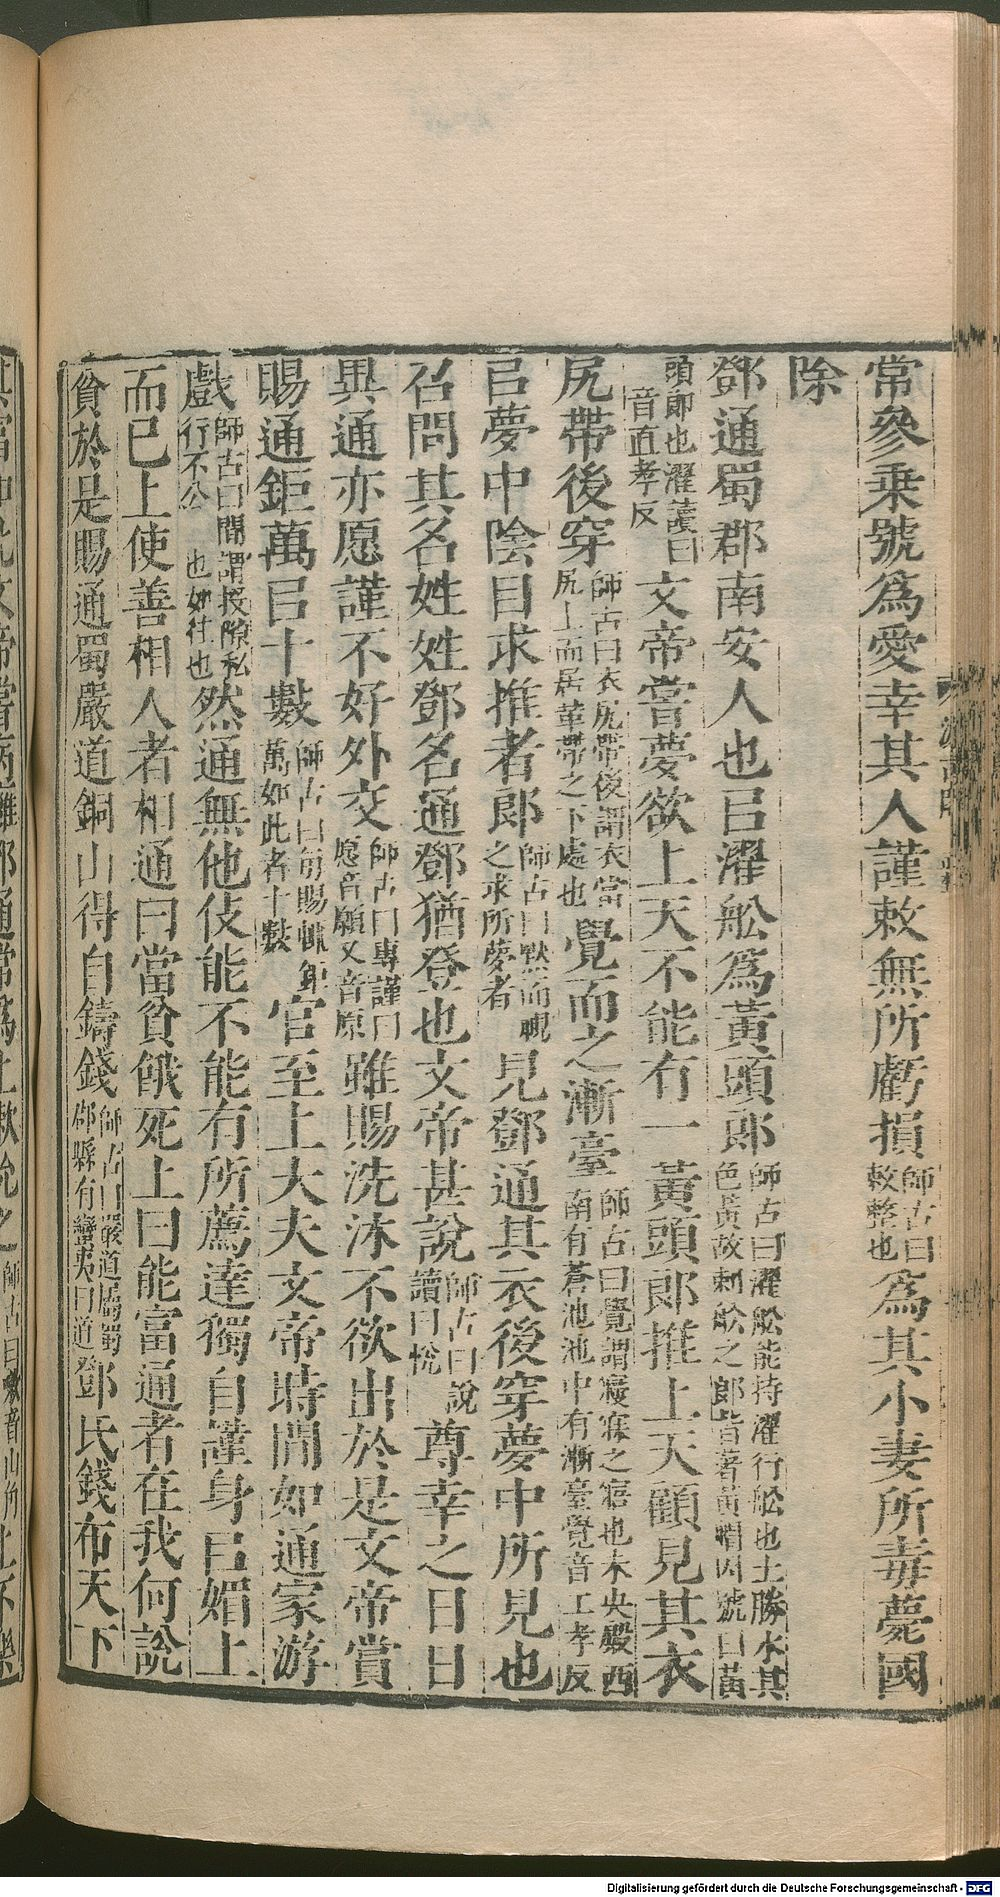 常參乘號爲愛幸其人謹敕無所虧損師古曰敕整也爲其小妻所毒薨國
除
鄧通蜀郡南安人也㠯濯舩爲黃頭郎師古曰濯舩能持濯行舩也土勝水其色黃故刺舩之郎皆著黃帽因號曰黃
頭郎也濯讀曰音直孝反文帝嘗夢欲上天不能有一黃頭郎推上天顧見其衣
尻帶後穿師古曰衣尻帶後謂衣當尻上而居革帶之下處也覺而之漸臺師古曰覺謂寢寐之寤也未央殿西南有蒼池池中有漸臺覺音工孝反
㠯夢中陰目求推者郎師古曰默而視之求所夢者見鄧通其衣後穿夢中所見也
召問其名姓姓鄧名通鄧猶登也文帝甚說師古曰說讀曰悅尊幸之日日
異通亦愿謹不好外交師古曰專謹曰愿音願又音原雖賜洗沐不欲出於是文帝賞
賜通鉅萬㠯十數師古曰每賜輒鉅萬如此者十數官至上大夫文帝時間如通家游
戲師古曰間謂投隙私行不公也如往也然通無他伎能不能有所薦達獨自謹身㠯媚上
而已上使善相人者相通曰當貧餓死上曰能富通者在我何說
貧於是賜通蜀嚴道銅山得自鑄錢師古曰嚴道屬蜀郡縣有蠻夷曰道鄧氏錢布天下